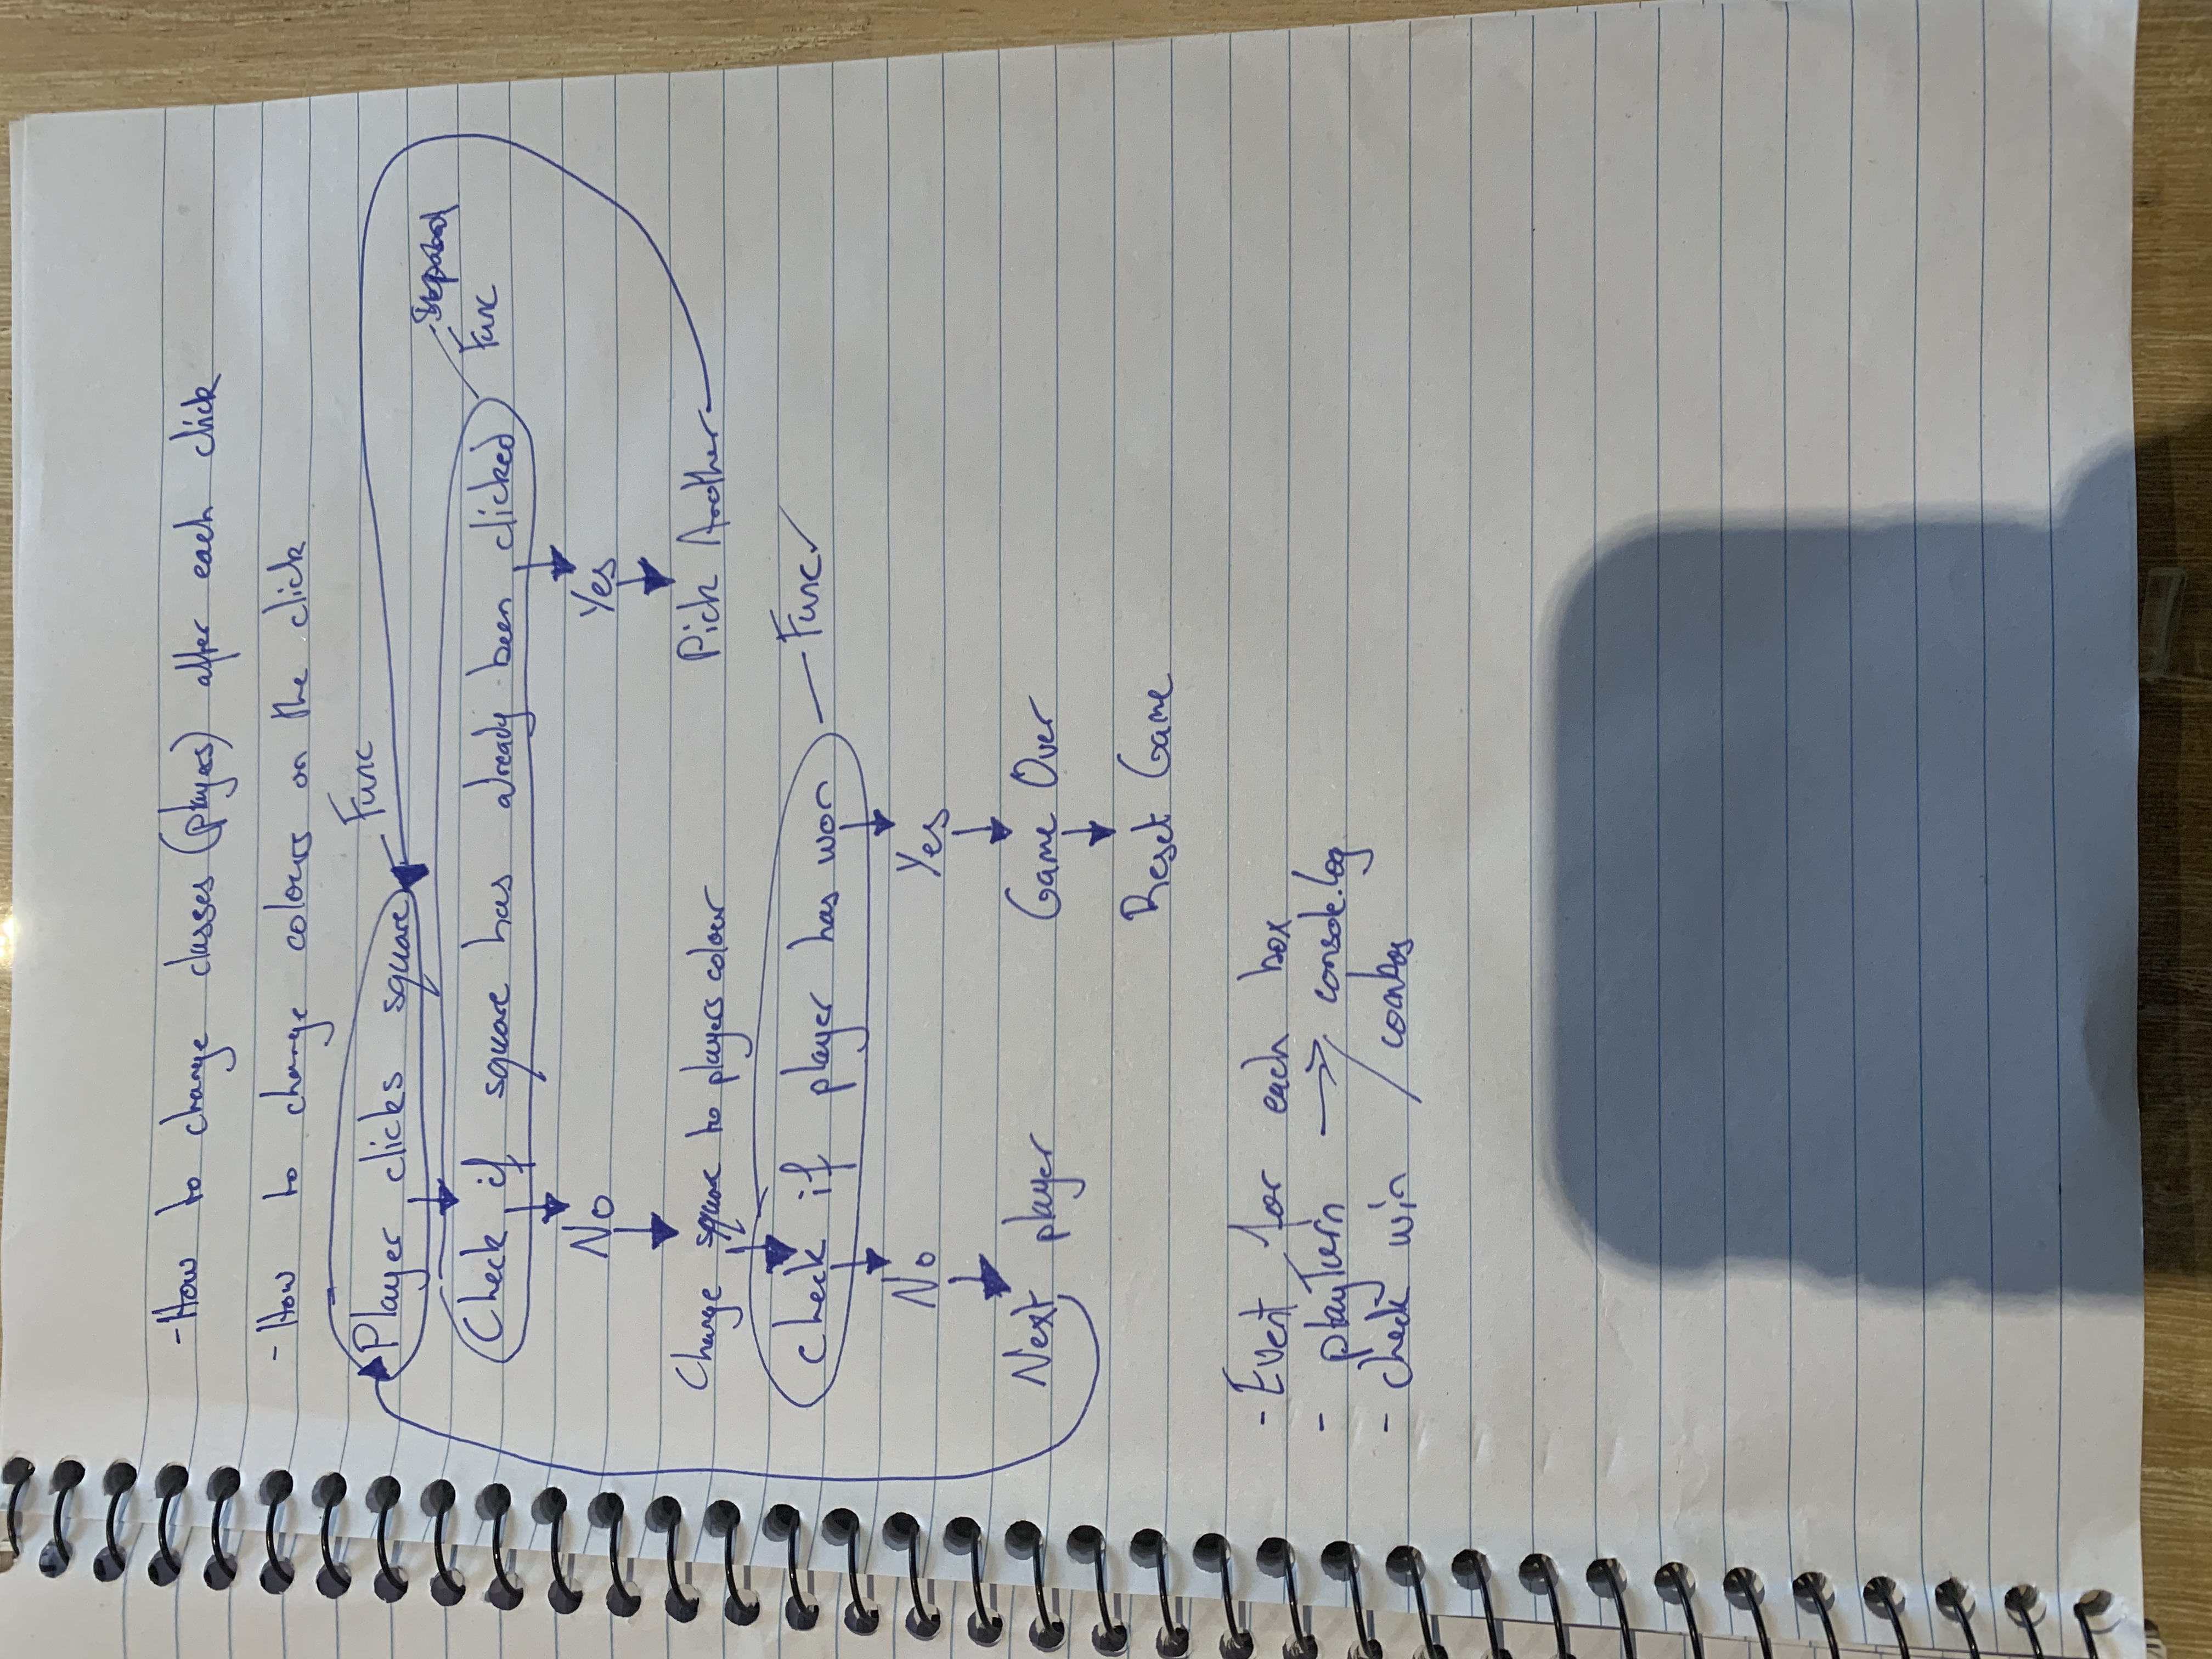 -How to change classes (players) after each click
-How to change colours on the click
Player clicks square
Func
Check if square has already been clicked
Func
No Yes
Change square to players colour Pick Another
check if player has won Func
No Yes
Next player Game Over
Reset Game
-Event for each box
- playTurn console.log
- check win / combos